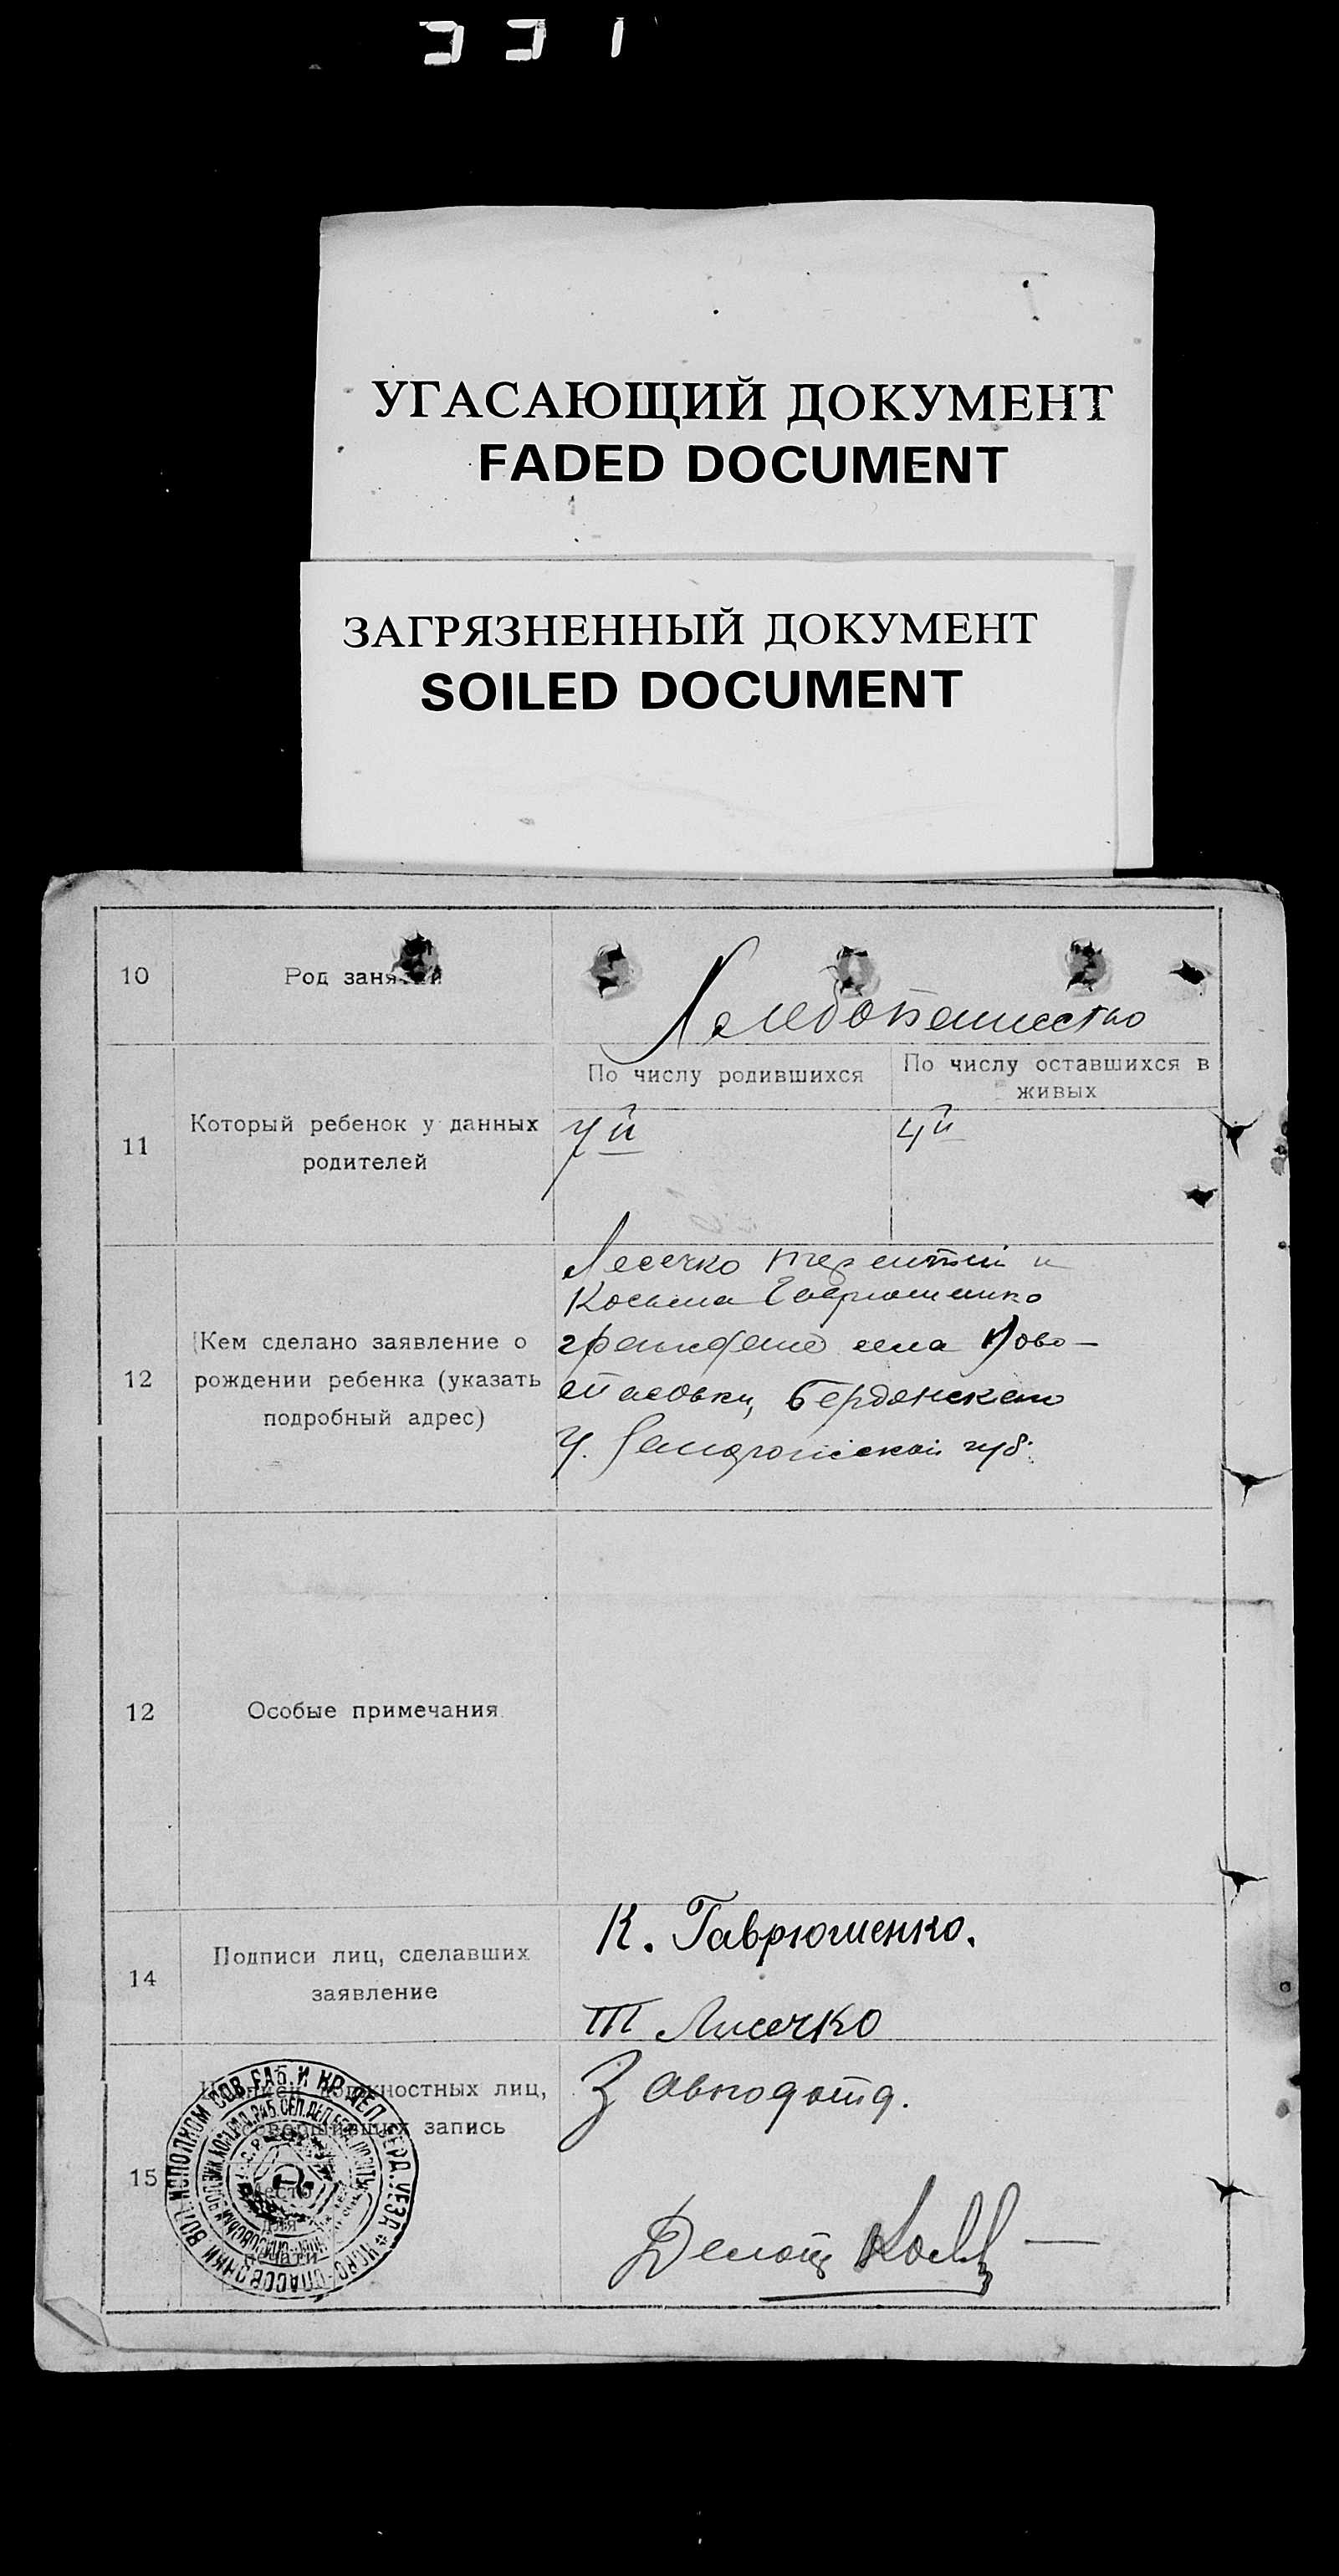 331
УГАСАЮЩИЙ ДОКУМЕНТ
FADED DOCUMENT
ЗАГРЯЗНЕННЫЙ ДОКУМЕНТ
SOILED DOCUMENT
10
Род занятий
Хлебопашество
11
Который ребенок у данных
родителей
По числу родившихся
По числу оставшихся в
живых
7й
4й
12
Кем сделано заявление о
рождении ребенка (указать
подробный адрес)
Лесечко Терентий и
Косьма Гаврюшенко
граждане села Ново-
спасовки, Бердянскаго
у. губ.
12
Особые примечания
14
Подписи лиц, сделавших
заявление
К. Гаврюшенко.
Т Лисечко
15
Подписи должностных лиц,
совершивших запись
Место
для
печати
ВОЛ. ИСПОЛКОМ СОВ. РАБ. И КР. ДЕП. БЕРД. УЕЗД. НОВО-СПАСОВСКИЙ
Завподотд.